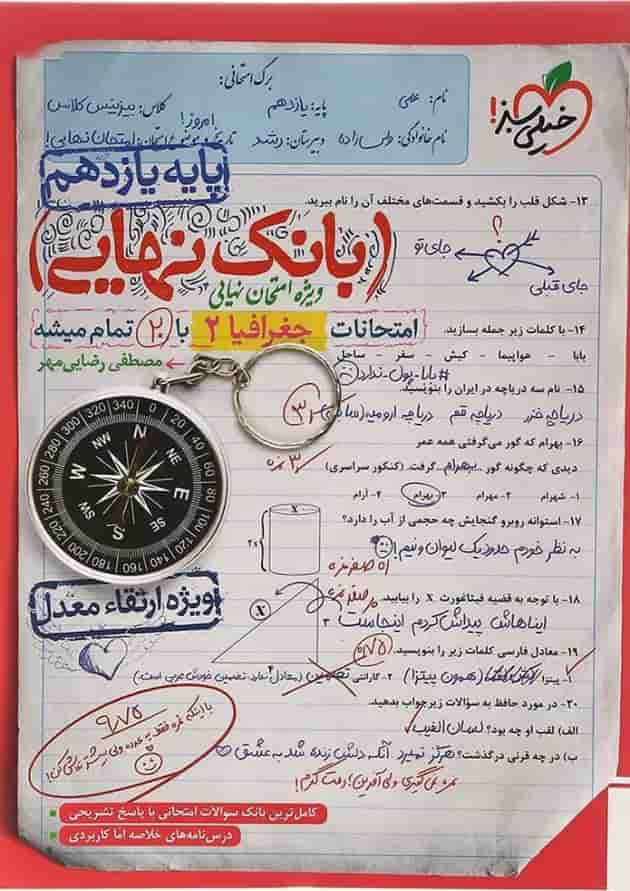 برگ امتحانی:
نام: علی
پایه: یازدهم
کلاس: بیزینس کلاس
نام خانوادگی:
دبیرستان: رشد
امروز!
امتحان نهایی!
خیلی سبز!
پایه یازدهم
(بانک نهایی)
ویژه امتحان نهایی
امتحانات جغرافیا ۲ با ۲۰ تمام میشه
مصطفی رضایی‌مهر
۱۳- شکل قلب را بکشید و قسمت‌های مختلف آن را نام ببرید.
؟
جای تو
جای قبلی
۱۴- با کلمات زیر جمله بسازید.
بابا - هواپیما - کیش - سفر - ساحل
#بابا-پول-ندارد
۱۵- نام سه دریاچه در ایران را بنویسید.
دریاچه خزر دریاچه قم دریاچه ارومیه
۱۶- بهرام که گور می‌گرفتی همه عمر
دیدی که چگونه گور ..بهرام.. گرفت. (کنکور سراسری)
۱- شهرام ۲- مهرام ۳- بهرام ۴- آرام
۱۷- استوانه روبرو گنجایش چه حجمی از آب را دارد؟
به نظر خودم حدود یک لیوان و نیم!
x
2x
۱۸- با توجه به قضیه فیثاغورث X را بیابید.
ایناهاش پیداش کردم اینجاست
X
۳
۴
۱۹- معادل فارسی کلمات زیر را بنویسید.
۱- پیتزا (همون پیتزا) ۲- گارانتی تضمین
۲۰- در مورد حافظ به سؤالات زیر جواب بدهید.
الف) لقب او چه بود؟ لسان الغیب
ب) در چه قرنی درگذشت؟ هرگز نمیرد آنکه دلش زنده شد به عشق
ویژه ارتقاء معدل
N
NE
E
SE
S
SW
W
NW
0 20 40 60 80 100 120 140 160 180 200 220 240 260 280 300 320 340
کامل‌ترین بانک سوالات امتحانی با پاسخ تشریحی
درس‌نامه‌های خلاصه اما کاربردی